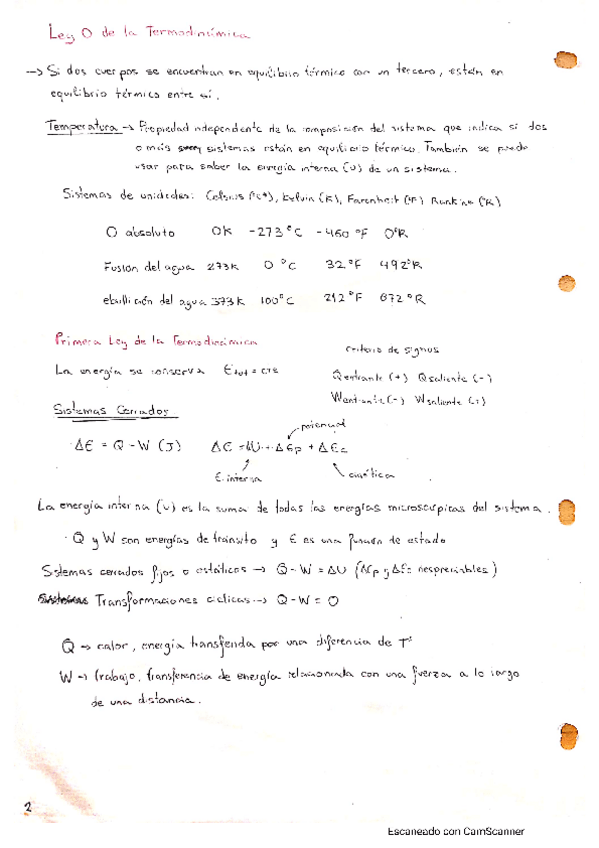 Ley 0 de la Termodinámica
→ Si dos cuerpos se encuentran en equilibrio térmico con un tercero, están en
equilibrio térmico entre sí.
Temperatura → Propiedad independente de la composición del sistema que indica si dos
o más sistemas están en equilibrio térmico. También se puede
usar para saber la energía interna (U) de un sistema.
Sistemas de unidades: Celsius (°C), Kelvin (K), Farenheit (°F) Rankine (°R)
0 absoluto 0K -273°C -460°F 0°R
Fusión del agua 273K 0°C 32°F 492°R
ebullición del agua 373K 100°C 212°F 672°R
Primera Ley de la Termodinámica
criterio de signos
La energía se conserva Etot = cte
Qentrante (+) Qsaliente (-)
Wentrante (-) Wsaliente (+)
Sistemas Cerrados
potencial
ΔE = Q - W (J) ΔE = ΔU + ΔEp + ΔEc
E. interna cinética
La energía interna (U) es la suma de todas las energías microscópicas del sistema.
Q y W son energías de tránsito y E es una función de estado
Sistemas cerrados fijos o estáticos → Q - W = ΔU (ΔEp y ΔEc despreciables)
Transformaciones cíclicas → Q - W = 0
Q → calor, energía transferida por una diferencia de Tª
W → trabajo, transferencia de energía relacionada con una fuerza a lo largo
de una distancia.
2
Escaneado con CamScanner